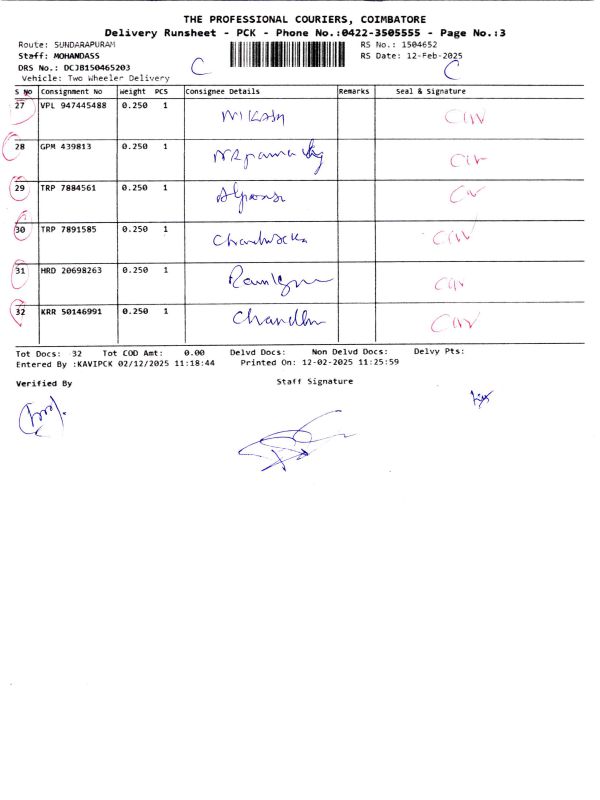 THE PROFESSIONAL COURIERS, COIMBATORE
Delivery Runsheet - PCK - Phone No.:0422-3505555 - Page No.:3
Route: SUNDARAPURAM RS No.: 1504652
Staff: MOHANDASS RS Date: 12-Feb-2025
DRS No.: DCJB150465203 C C
Vehicle: Two Wheeler Delivery
S No Consignment No Weight PCS Consignee Details Remarks Seal & Signature
27 VPL 947445488 0.250 1
28 GPM 439813 0.250 1
29 TRP 7884561 0.250 1
30 TRP 7891585 0.250 1
31 HRD 20698263 0.250 1
32 KRR 50146991 0.250 1
Tot Docs: 32 Tot COD Amt: 0.00 Delvd Docs: Non Delvd Docs: Delvy Pts:
Entered By :KAVIPCK 02/12/2025 11:18:44 Printed On: 12-02-2025 11:25:59
Verified By Staff Signature